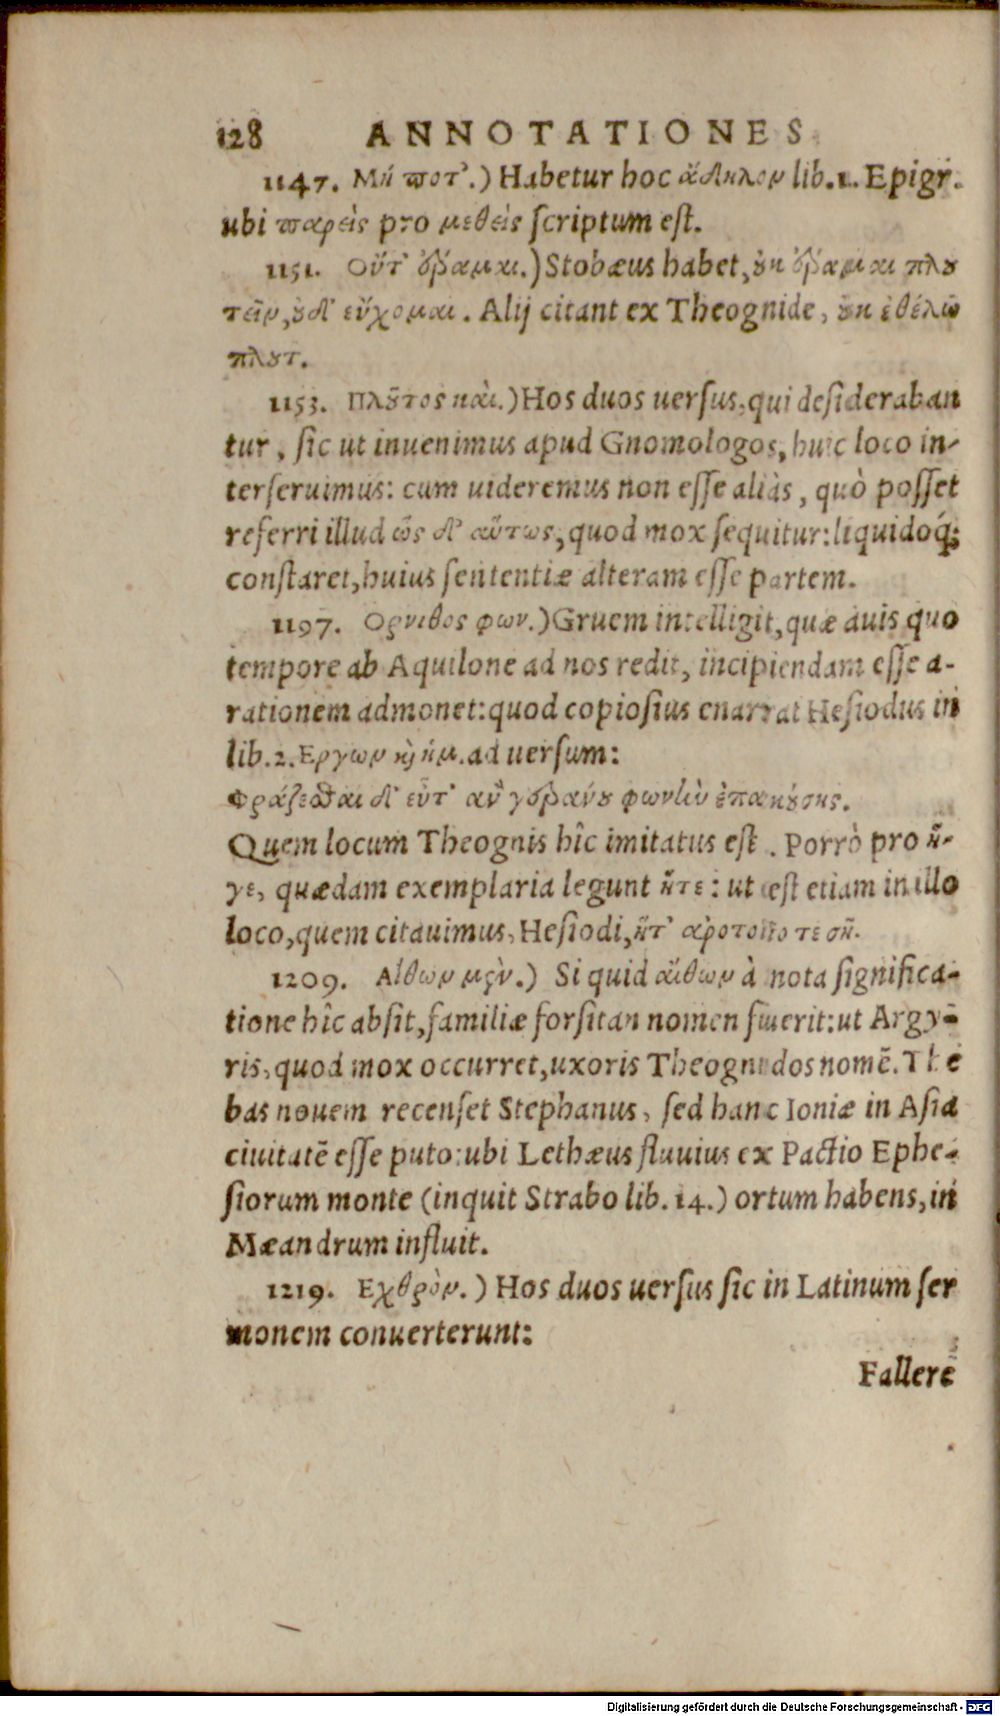 128 ANNOTATIONES
1147. Μή ποτ᾽.) Habetur hoc ἄδηλον lib.1. Epigr.
ubi παρεὶς pro μεθεὶς ſcriptum eſt.
1151. Οὔτ᾽ ἔραμαι.) Stobæus habet, οὐκ ἔραμαι πλου
τεῖν, οὐδ᾽ εὔχομαι. Alij citant ex Theognide, οὐκ ἐθέλω
πλουτ.
1153. Πλοῦτος καὶ.) Hos duos uerſus, qui deſideraban
tur, ſic ut inuenimus apud Gnomologos, huic loco in-
terſeruimus: cum uideremus non eſſe aliàs, quò poſſet
referri illud ὣς δ᾽ αὔτως, quod mox ſequitur: liquidoq́;
conſtaret, huius ſententiæ alteram eſſe partem.
1197. Ορνιθος φων.) Gruem intelligit, quæ auis quo
tempore ab Aquilone ad nos redit, incipiendam eſſe a-
rationem admonet: quod copioſius enarrat Heſiodus in
lib.2. Εργων καὶ ἡμ. ad uerſum:
Φράζεσθαι δ᾽ εὖτ᾽ ἂν γεράνου φωνὴν ἐπακούσῃς.
Quem locum Theognis hîc imitatus eſt. Porrò pro ἥ-
γε, quædam exemplaria legunt ἥτε: ut eſt etiam in illo
loco, quem citauimus, Heſiodi, ἥτ᾽ ἀρότοιό τε σῆ.
1209. Αἴθων μὲν.) Si quid αἴθων à nota ſignifica-
tione hîc abſit, familiæ forſitan nomen fuerit: ut Argy-
ris, quod mox occurret, uxoris Theognidos nomē. The
bas nouem recenſet Stephanus, ſed hanc Ioniæ in Aſia
ciuitatē eſſe puto: ubi Lethæus fluuius ex Pactio Ephe-
ſiorum monte (inquit Strabo lib. 14.) ortum habens, in
Mæandrum influit.
1219. Εχθρὸν.) Hos duos uerſus ſic in Latinum ſer
monem conuerterunt:
Fallere
Digitalisierung gefördert durch die Deutsche Forschungsgemeinschaft - DFG